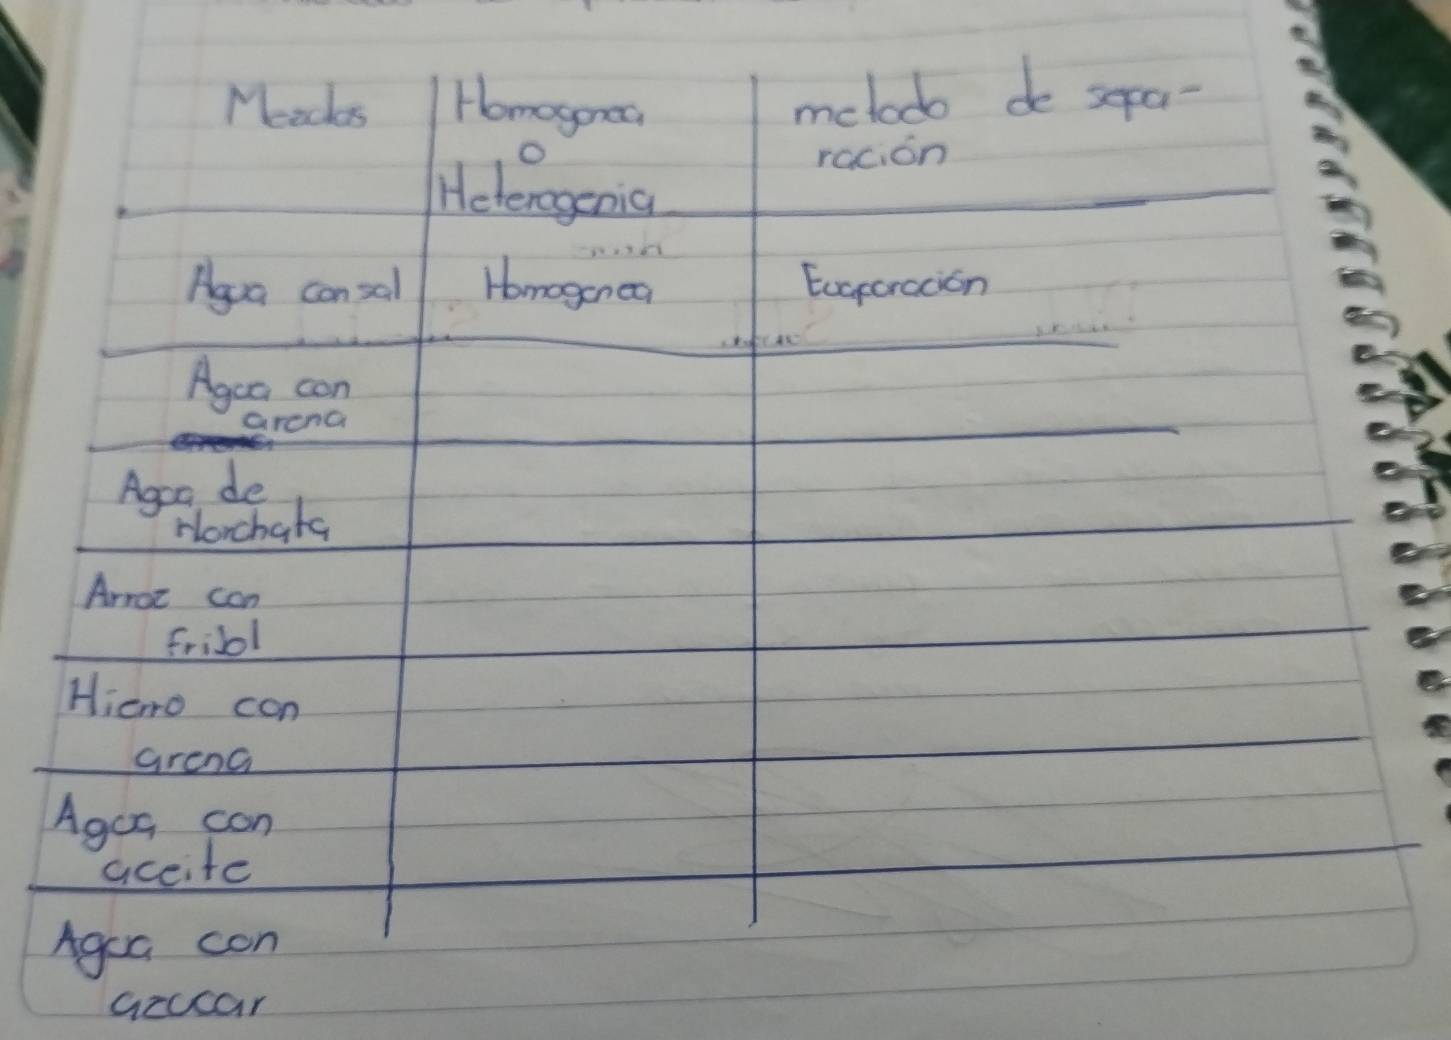 Mezclas Homogenea metodo de sepa-
o ración
Heterogenia
Agua con sal Homogenea Evaporación
Agua con
arena
Agua de
Horchata
Arroz con
frijol
Hierro con
arena
Agua con
aceite
Agua con
azucar